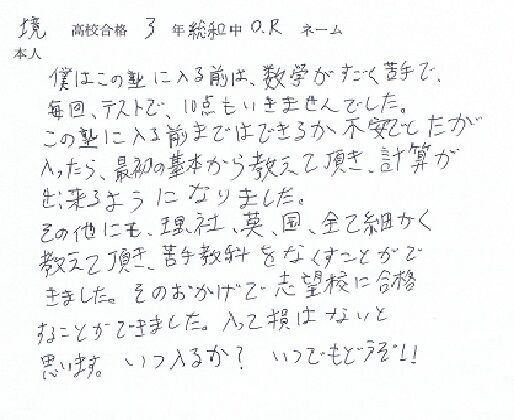 境 高校合格 3 年 総和中 O.R ネーム
本人
僕はこの塾に入る前は、数学がすごく苦手で、
毎回、テストで、10点もいきませんでした。
この塾に入る前まではできるか不安でしたが
入ったら、最初の基本から教えて頂き、計算が
出来るようになりました。
その他にも、理、社、英、国、全て細かく
教えて頂き、苦手教科をなくすことがで
きました。そのおかげで志望校に合格
することができました。入って損はないと
思います。いつ入るか? いつでもどうぞ!!